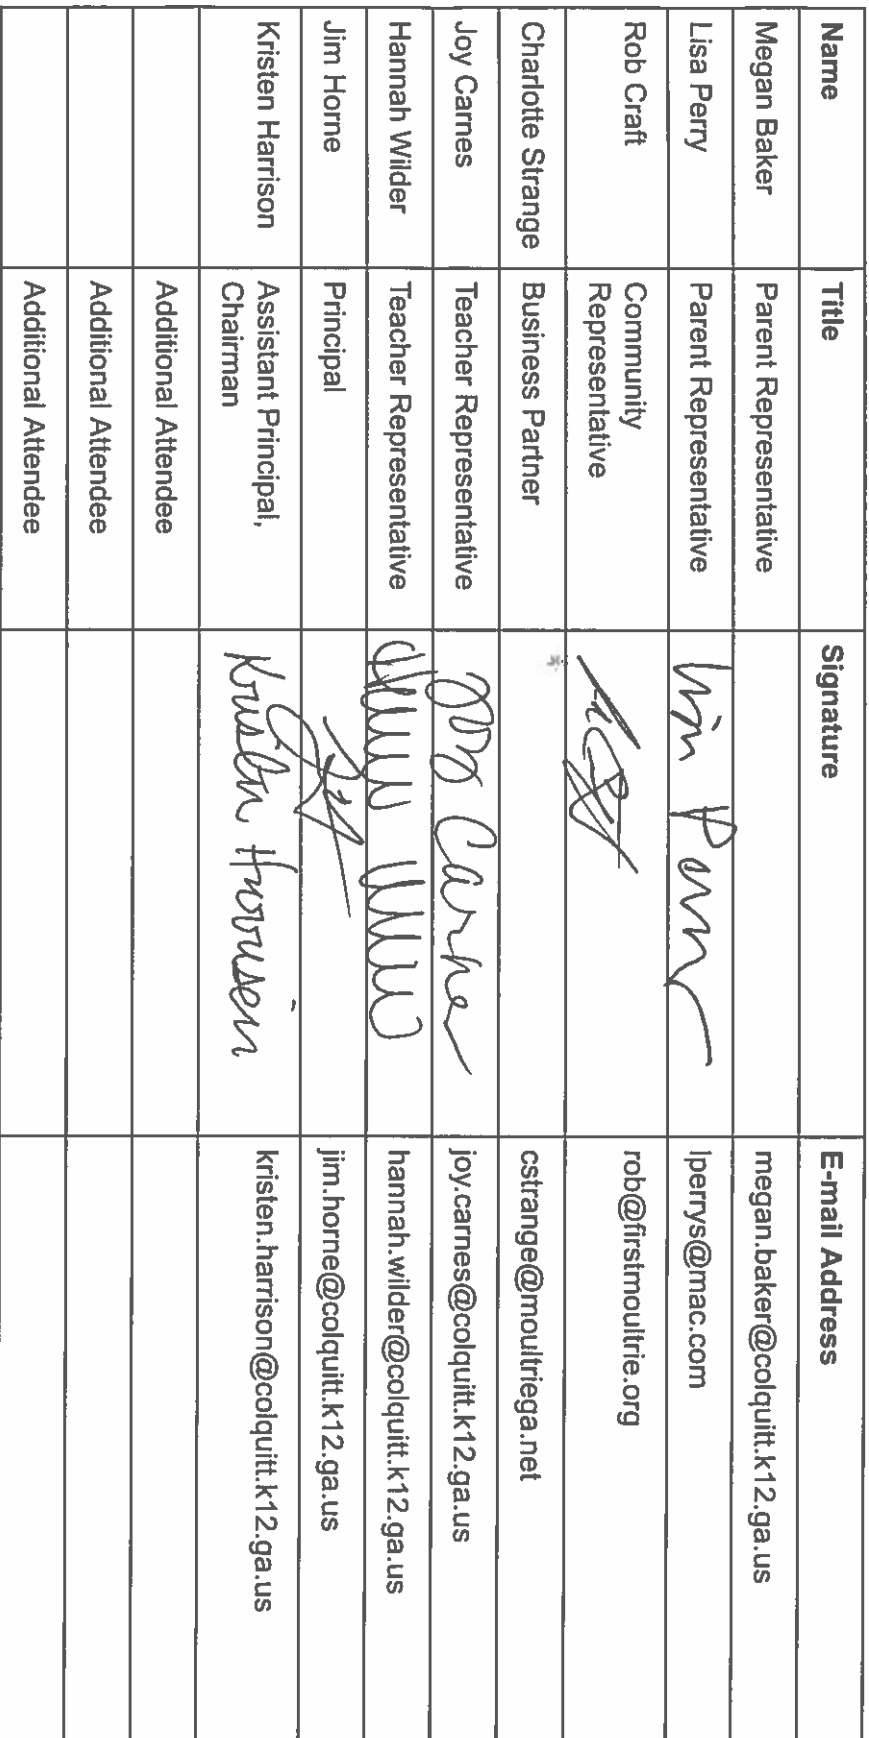 Name Title Signature E-mail Address
Megan Baker Parent Representative megan.baker@colquitt.k12.ga.us
Lisa Perry Parent Representative Lisa Perry lperrys@mac.com
Rob Craft Community rob@firstmoultrie.org
Representative
Charlotte Strange Business Partner cstrange@moultriega.net
Joy Carnes Teacher Representative Joy Carnes joy.carnes@colquitt.k12.ga.us
Hannah Wilder Teacher Representative hannah.wilder@colquitt.k12.ga.us
Jim Horne Principal jim.horne@colquitt.k12.ga.us
Kristen Harrison Assistant Principal, Kristen Harrison kristen.harrison@colquitt.k12.ga.us
Chairman
Additional Attendee
Additional Attendee
Additional Attendee